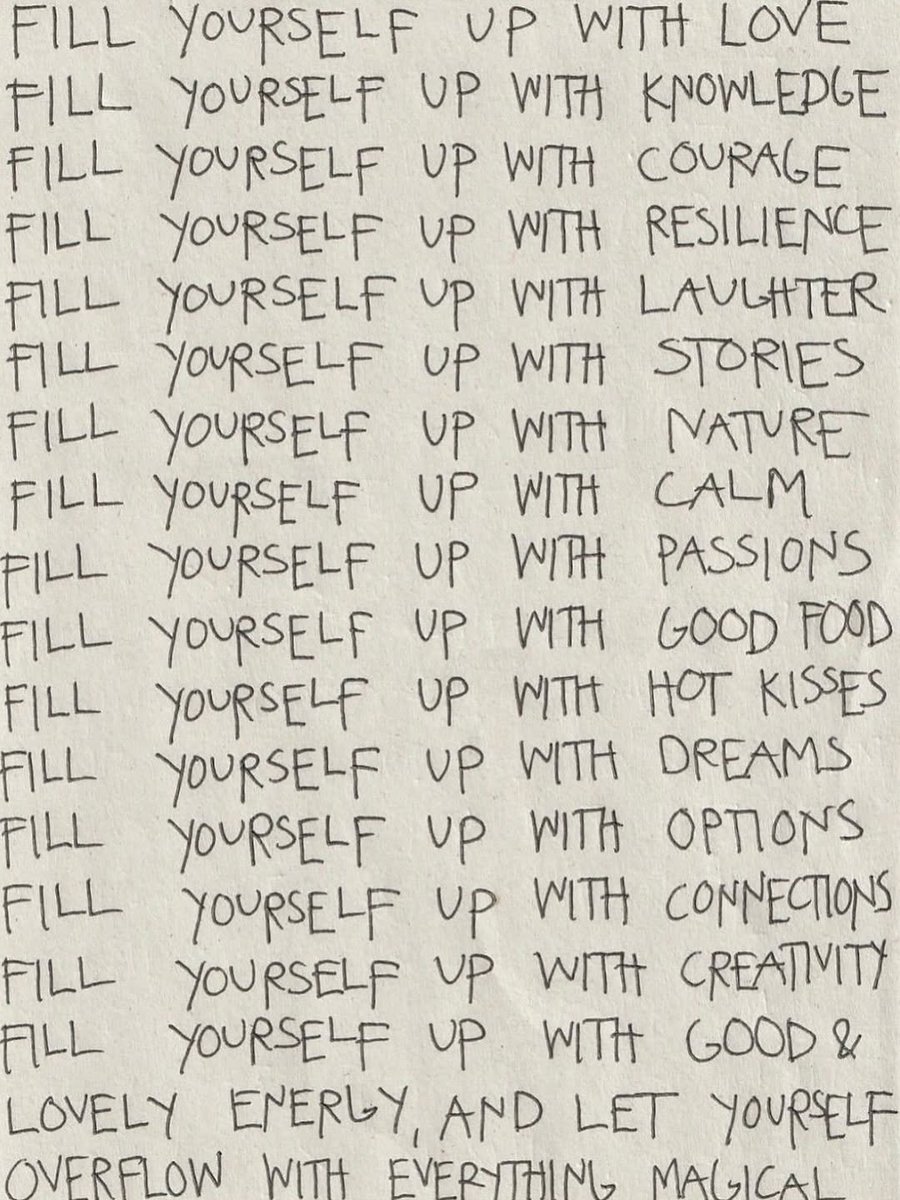 FILL YOURSELF UP WITH LOVE
FILL YOURSELF UP WITH KNOWLEDGE
FILL YOURSELF UP WITH COURAGE
FILL YOURSELF UP WITH RESILIENCE
FILL YOURSELF UP WITH LAUGHTER
FILL YOURSELF UP WITH STORIES
FILL YOURSELF UP WITH NATURE
FILL YOURSELF UP WITH CALM
FILL YOURSELF UP WITH PASSIONS
FILL YOURSELF UP WITH GOOD FOOD
FILL YOURSELF UP WITH HOT KISSES
FILL YOURSELF UP WITH DREAMS
FILL YOURSELF UP WITH OPTIONS
FILL YOURSELF UP WITH CONNECTIONS
FILL YOURSELF UP WITH CREATIVITY
FILL YOURSELF UP WITH GOOD &
LOVELY ENERGY, AND LET YOURSELF
OVERFLOW WITH EVERYTHING MAGICAL